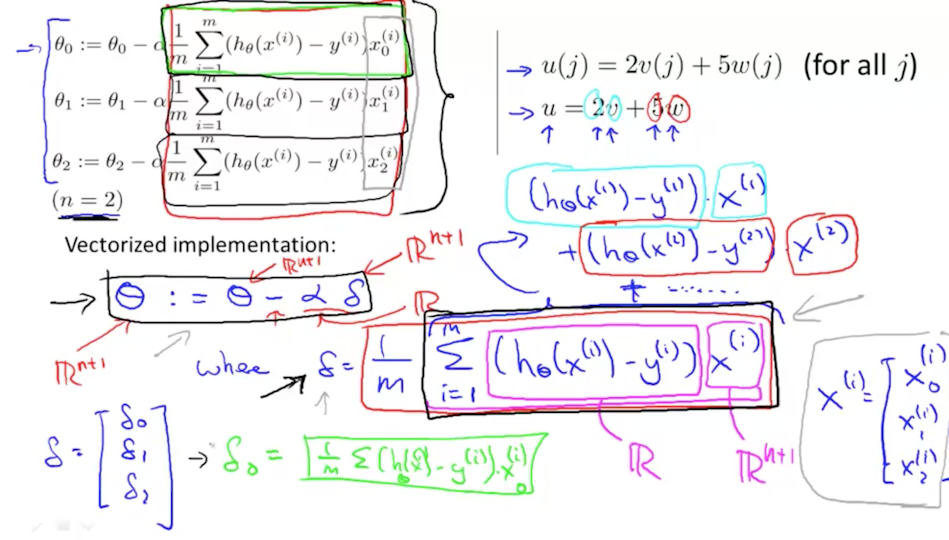 θ₀ := θ₀ − α 1/m ∑ᵢ₌₁ᵐ (hθ(x⁽ⁱ⁾) − y⁽ⁱ⁾)x₀⁽ⁱ⁾
θ₁ := θ₁ − α 1/m ∑ᵢ₌₁ᵐ (hθ(x⁽ⁱ⁾) − y⁽ⁱ⁾)x₁⁽ⁱ⁾
θ₂ := θ₂ − α 1/m ∑ᵢ₌₁ᵐ (hθ(x⁽ⁱ⁾) − y⁽ⁱ⁾)x₂⁽ⁱ⁾
(n = 2)
→ u(j) = 2v(j) + 5w(j) (for all j)
→ u = 2v + 5w
↑ ↑↑ ↑↑
(hθ(x⁽¹⁾) − y⁽¹⁾) · x⁽¹⁾
+ (hθ(x⁽²⁾) − y⁽²⁾) x⁽²⁾
+ ........
Vectorized implementation:
ℝⁿ⁺¹ ℝⁿ⁺¹
→ θ := θ − α δ
ℝⁿ⁺¹ ℝ
where δ = 1/m ∑ᵢ₌₁ᵐ (hθ(x⁽ⁱ⁾) − y⁽ⁱ⁾) x⁽ⁱ⁾
ℝ ℝⁿ⁺¹
x⁽ⁱ⁾ = [x₀⁽ⁱ⁾
x₁⁽ⁱ⁾
x₂⁽ⁱ⁾]
δ = [δ₀
δ₁
δ₂]
→ δ₀ = 1/m ∑ (hθ(x⁽ⁱ⁾) − y⁽ⁱ⁾) · x₀⁽ⁱ⁾